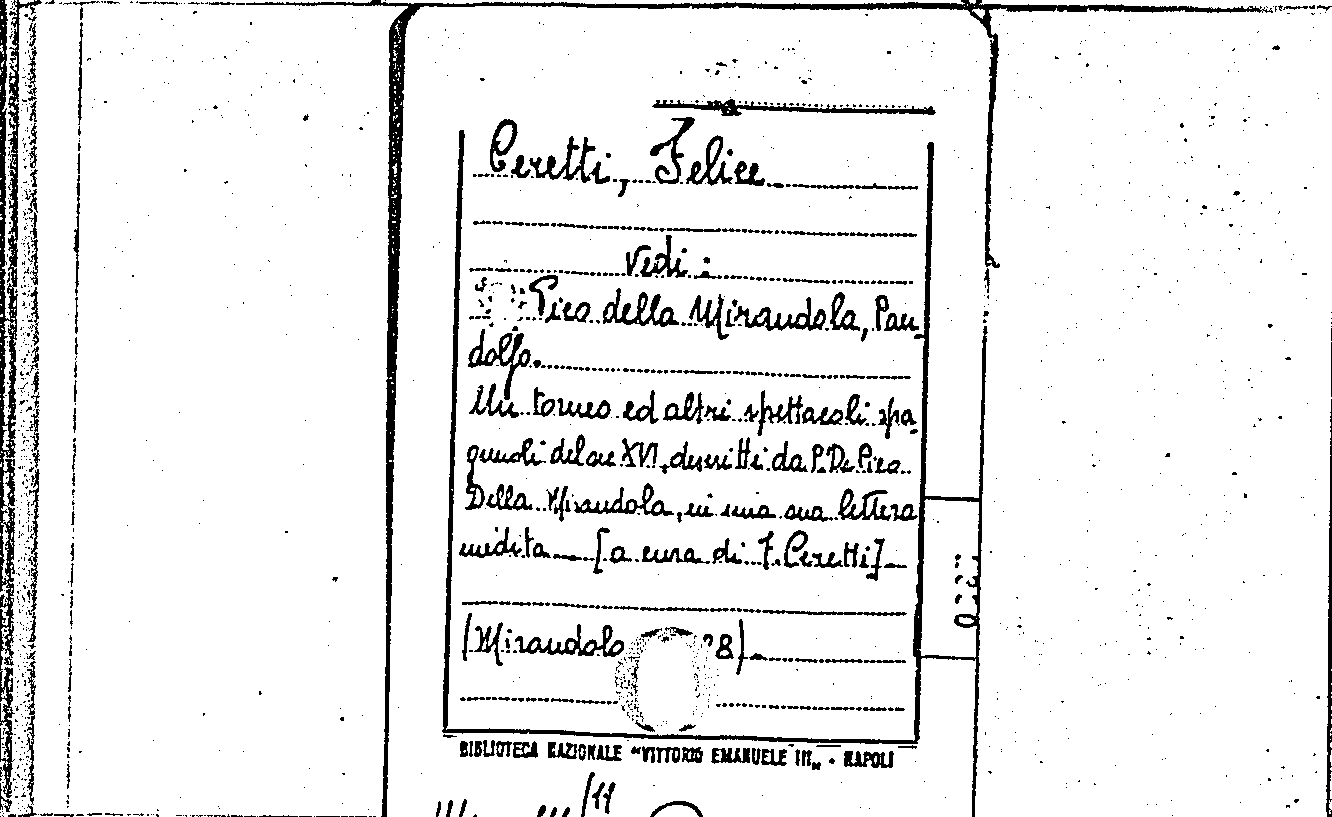 Ceretti, Felice
vedi :
Pico della Mirandola, Pan-
dolfo.
Un torneo ed altri spettacoli spa-
gnuoli del sec XVI, descritti da P. De Pico
Della Mirandola, in una sua lettera
inedita — [a cura di F. Ceretti] —
(Mirandola 8) —
BIBLIOTECA NAZIONALE "VITTORIO EMANUELE III„ - NAPOLI